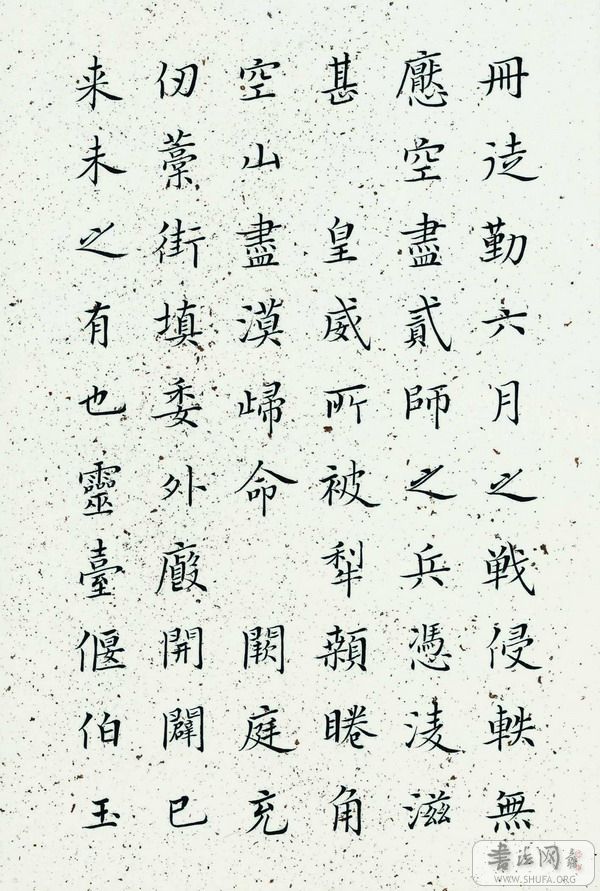 冊徒勤六月之戰侵軼無
懕空盡貳師之兵憑淩滋
甚 皇威所被犁顙睠角
空山盡漠歸命 闕庭充
仞藁街填委外廄開闢已
来未之有也靈臺偃伯玉
書法网
WWW.SHUFA.ORG